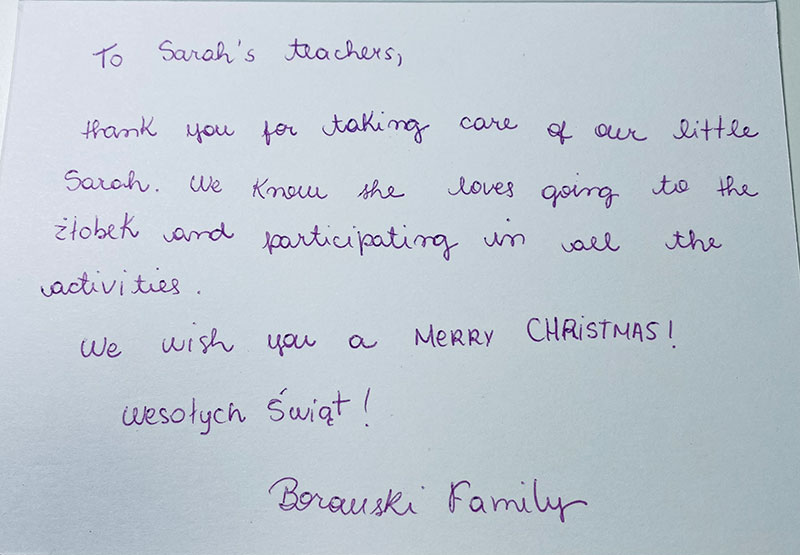 To Sarah's teachers,
thank you for taking care of our little
Sarah. We know she loves going to the
żłobek and participating in all the
activities.
We wish you a MERRY CHRISTMAS!
Wesołych Świąt!
Borauski Family